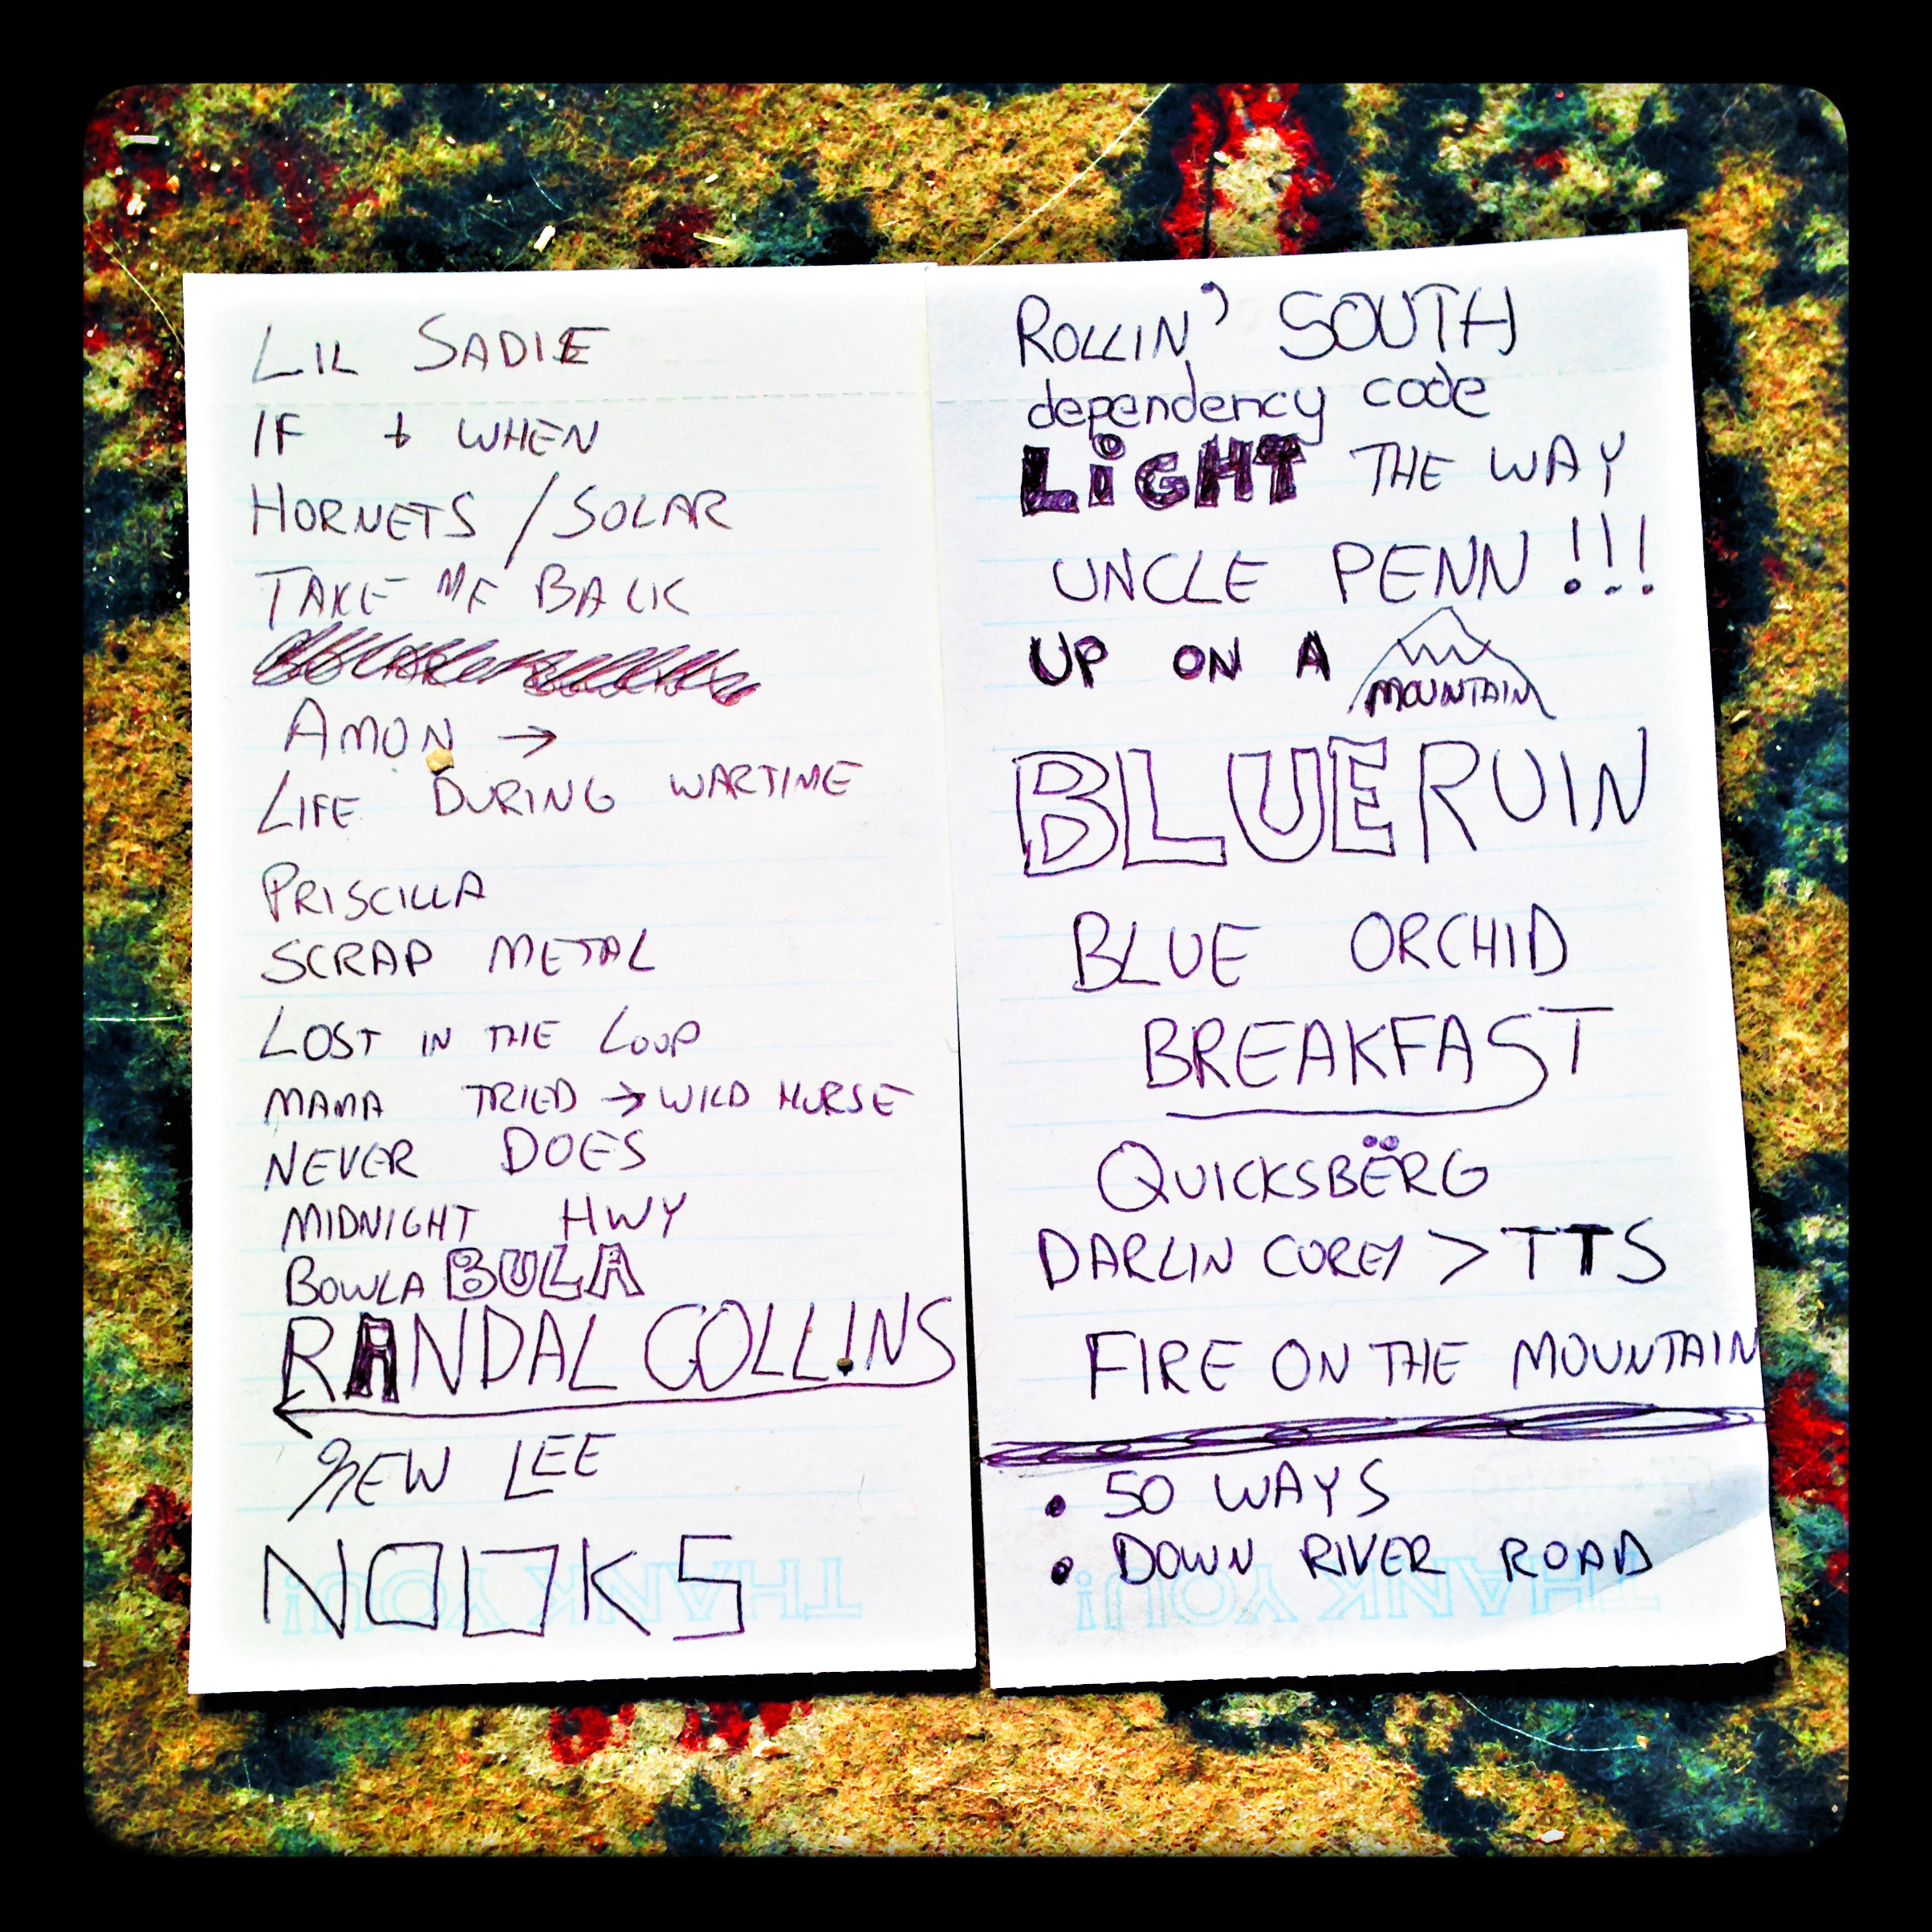 LIL SADIE
IF + WHEN
HORNETS / SOLAR
TAKE ME BACK
AMON →
LIFE DURING WARTIME
PRISCILLA
SCRAP METAL
LOST IN THE LOOP
MAMA TRIED → WILD HORSE
NEVER DOES
MIDNIGHT HWY
BOWLA BULA
RANDAL COLLINS
NEW LEE
NOOKS
THANK YOU!
ROLLIN' SOUTH
dependency code
LiGHT THE WAY
UNCLE PENN!!!
UP ON A MOUNTAIN
BLUE RUIN
BLUE ORCHID
BREAKFAST
QUICKSBËRG
DARLIN COREY > TTS
FIRE ON THE MOUNTAIN
• 50 WAYS
• DOWN RIVER ROAD
THANK YOU!